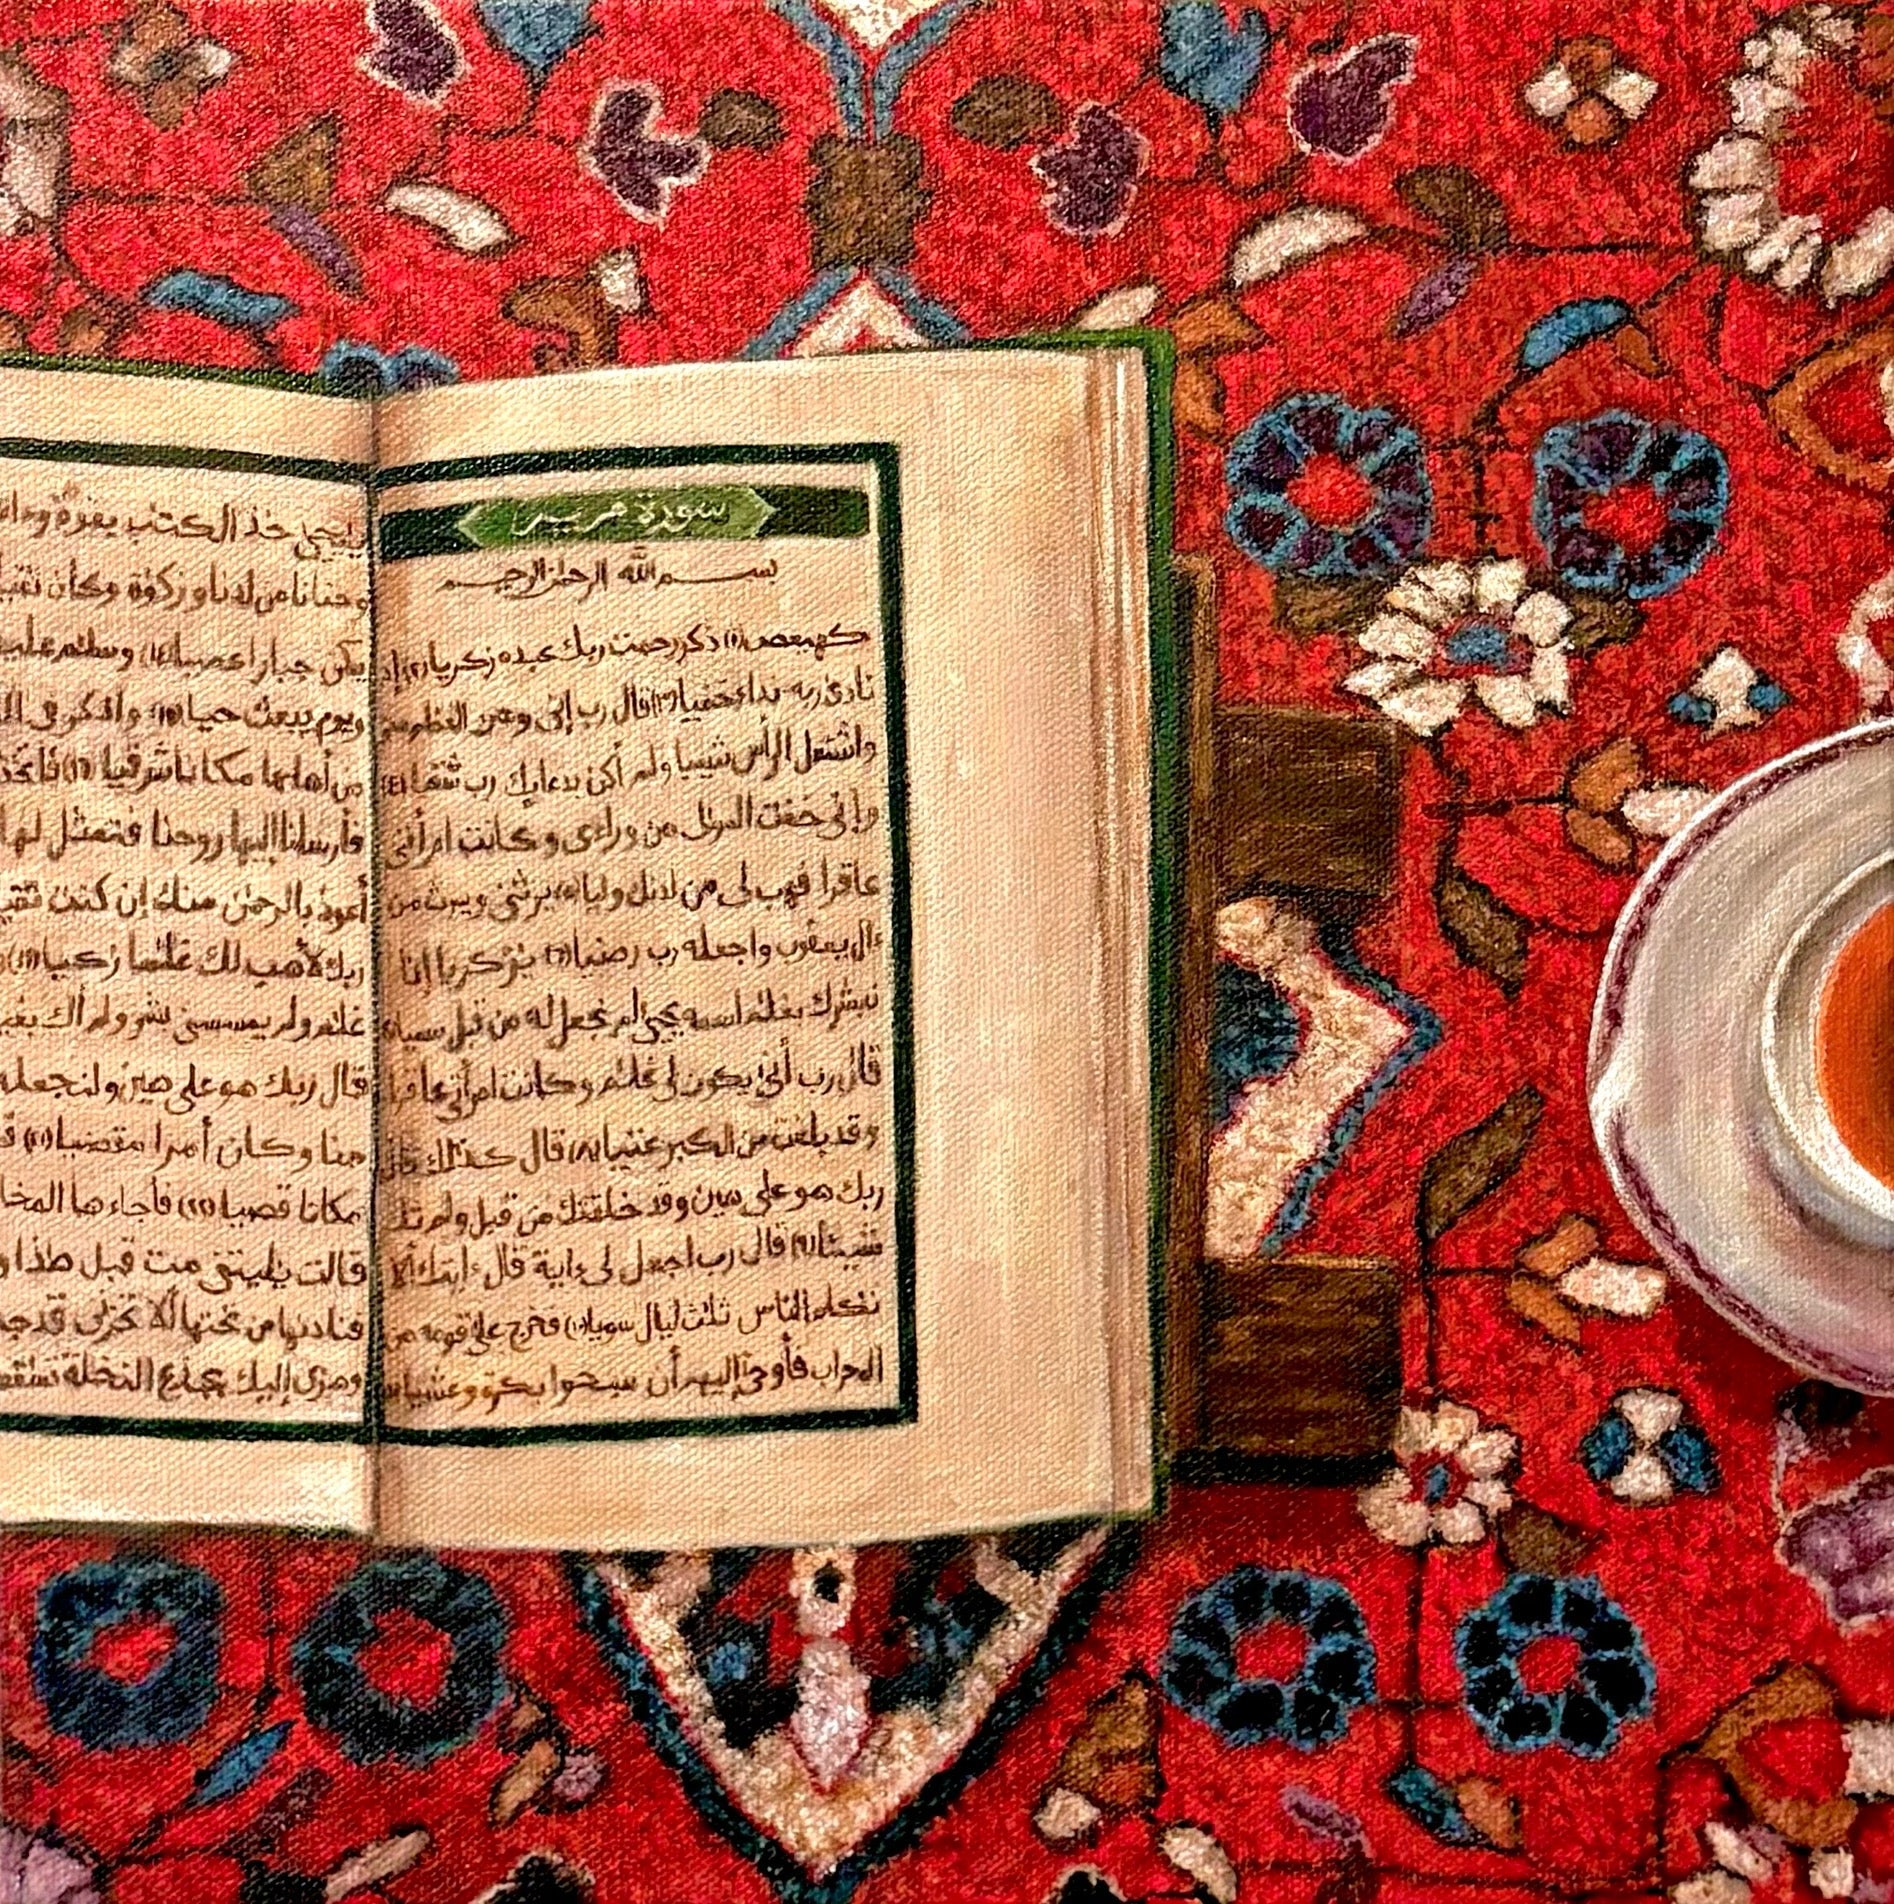 سورة مريم
بسم الله الرحمن الرحيم
كهيعص (١) ذكر رحمت ربك عبده زكريا (٢) إذ
نادى ربه نداء خفيا (٣) قال رب إنى وهن العظم من
واشتعل الرأس شيبا ولم أكن بدعايك رب شقيا (٤)
وإنى خفت المولى من وراءى وكانت امرأتى
عاقرا فهب لى من لدنك وليا (٥) يرثنى ويرث من
ءال يعقوب واجعله رب رضيا (٦) يزكريا إنا
نبشرك بغلم اسمه يحيى لم نجعل له من قبل سميا
قال رب أنى يكون لى غلم وكانت امرأتى عاقرا
وقد بلغت من الكبر عتيا (٨) قال كذلك قال
ربك هو على هين وقد خلقتك من قبل ولم تك
شيئا (٩) قال رب اجعل لى ءاية قال ءايتك ألا
تكلم الناس ثلث ليال سويا (١٠) فخرج على قومه من
المحراب فأوحى إليهم أن سبحوا بكرة وعشيا
ييحيى خذ الكتب بقوة
وحنانا من لدنا وزكوة وكان تقيا
يكن جبارا عصيا (١٤) وسلم عليه
ويوم يبعث حيا (١٥) واذكر فى
من أهلها مكانا شرقيا (١٦)
فأرسلنا إليها روحنا فتمثل لها
أعوذ بالرحمن منك إن كنت
ربك لأهب لك غلما زكيا (١٩)
غلم ولم يمسسنى بشر ولم أك
قال ربك هو على هين ولنجعله
منا وكان أمرا مقضيا (٢١)
مكانا قصيا (٢٢) فأجاءها
قالت يليتنى مت قبل هذا
فنادىها من تحتها ألا تحزنى قد
وهزى إليك بجذع النخلة